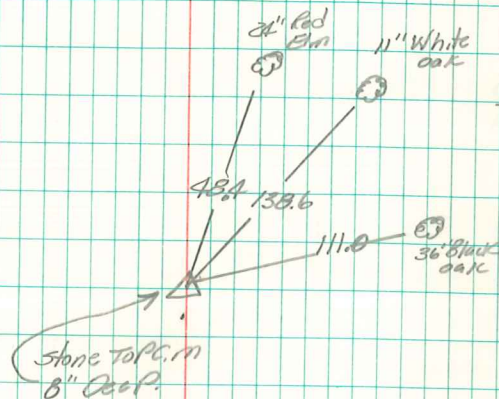 24" Red
Elm
11" White
oak
48.4
138.6
111.0
36" Black
oak
Stone TOP C.M
8" DeeP.